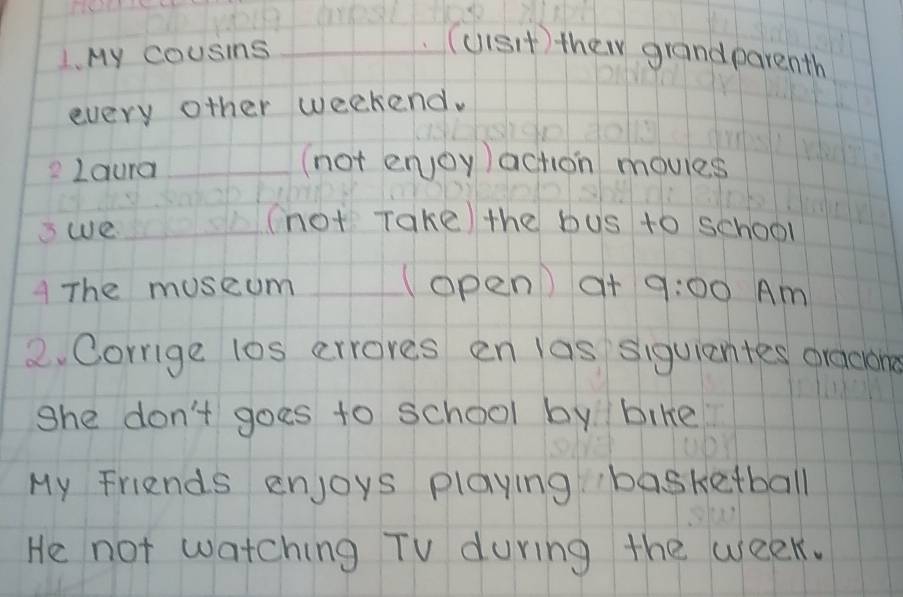 1. My cousins ________. (visit) their grandparenth
every other weekend.
2 Laura ________ (not enjoy) action movies
3 we ________ (not Take) the bus to school
4 The museum ________ (open) at 9:00 Am
2. Corrige los errores en las siguientes oracione
She don't goes to school by bike
My Friends enjoys playing basketball
He not watching TV during the week.